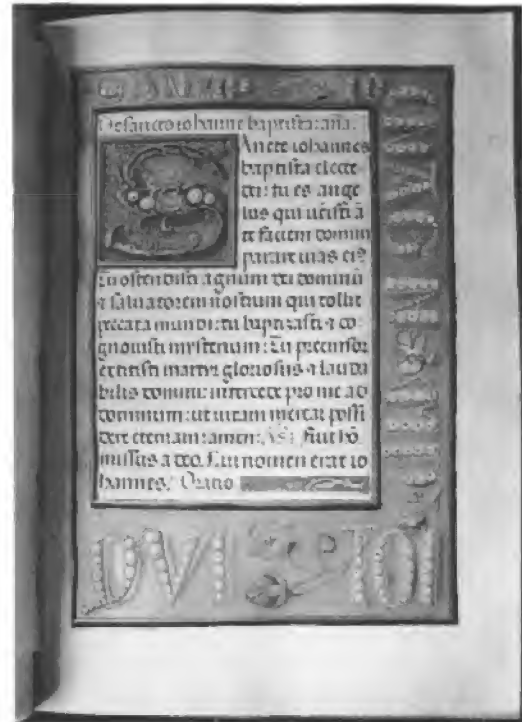 De sancto iohanne baptista: añā.
Sancte iohannes
baptista electe
dei: tu es ange
lus qui uenisti ā
te faciem domini
parare uias ei⁹
Tu ostendisti agnum dei dominū
⁊ saluatorem nostrum qui tollit
peccata mundi: tu baptizasti ⁊ co
gnouisti mysterium: Tu precursor
extitisti martir gloriosus ⁊ lauda
bilis domini: intercede pro me ad
dominum: ut uitam merear possi
dere eternam: amen: Fuit hō
missus a deo. Cui nomen erat io
hannes. Oratio